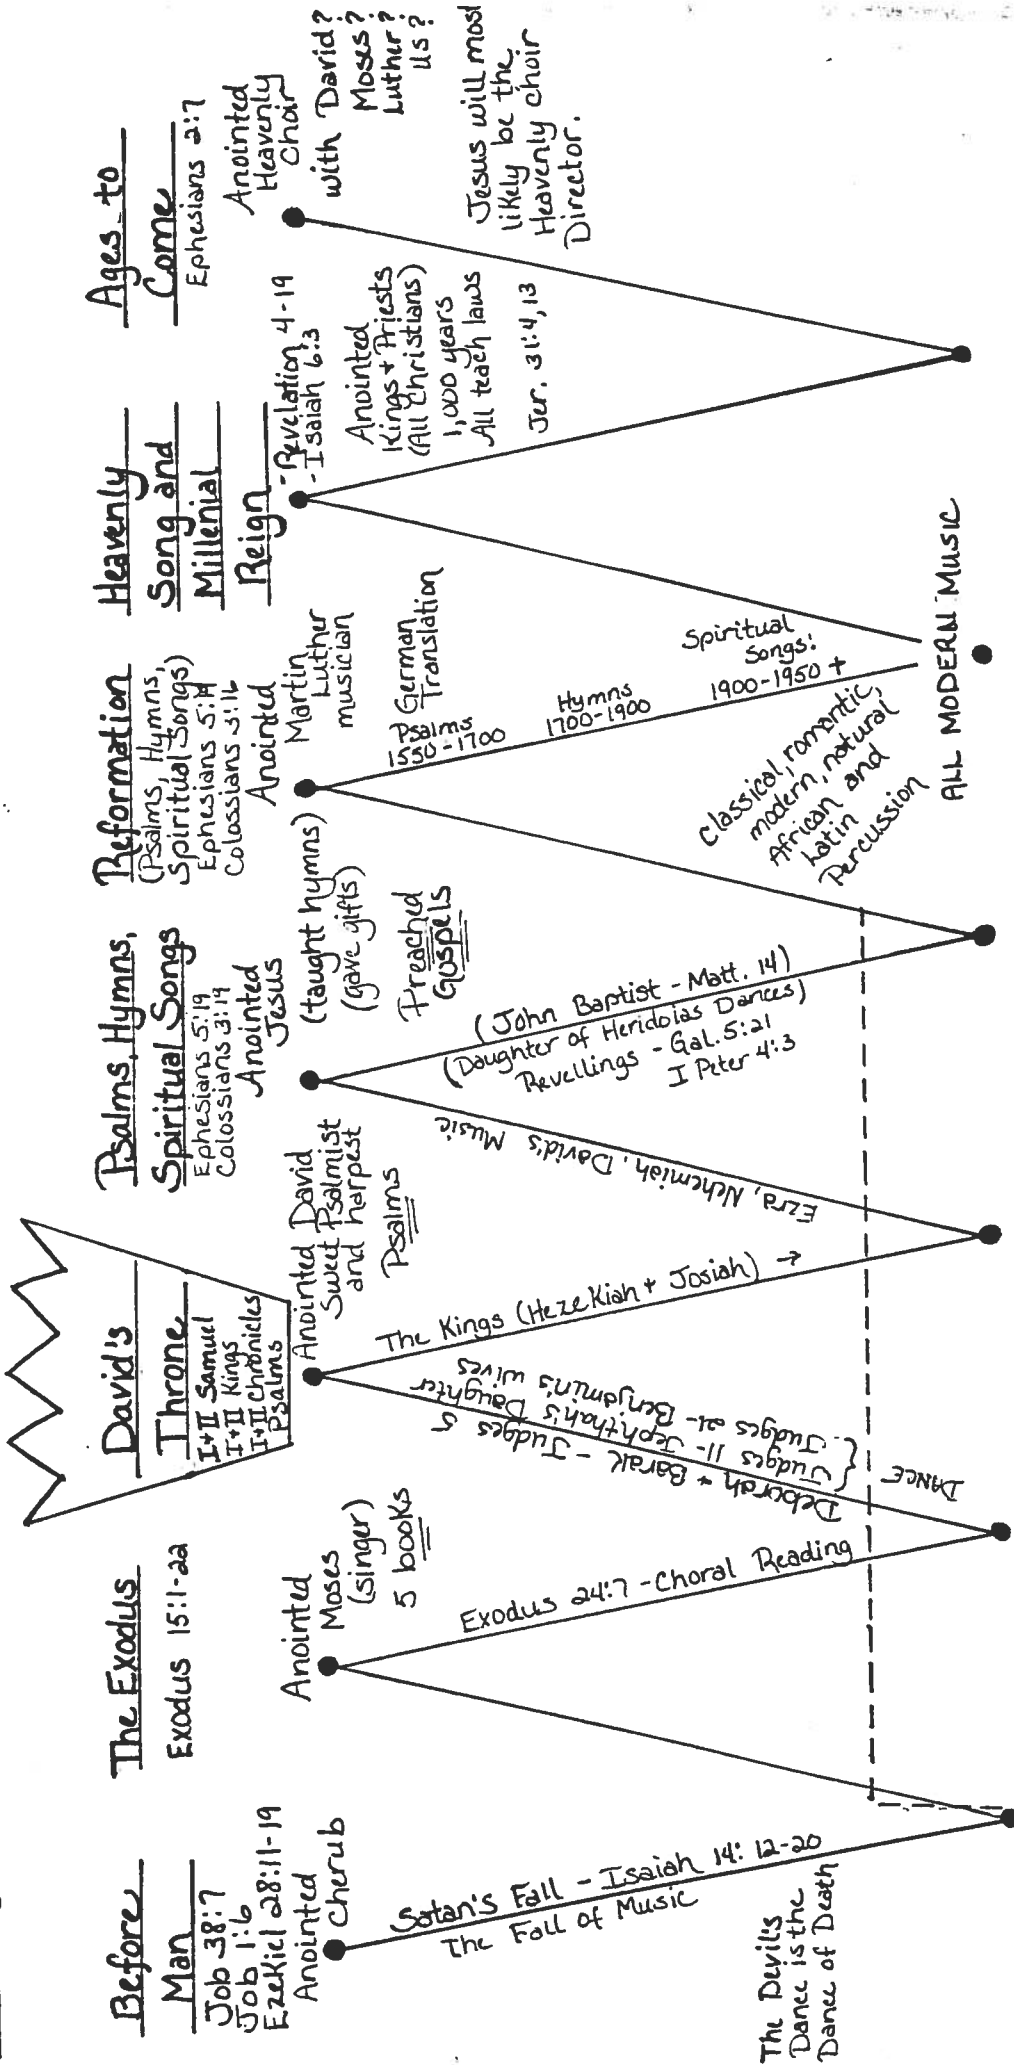 Before
Man
Job 38:7
Job 1:6
Ezekiel 28:11-19
Anointed
Cherub
Satan's Fall - Isaiah 14: 12-20
The Fall of Music
The Devil's
Dance is the
Dance of Death
The Exodus
Exodus 15:1-22
Anointed
Moses
(singer)
5 books
Exodus 24:7 - Choral Reading
DANCE
Deborah + Barak - Judges 5
{ Judges 11- Jephthah's Daughter
Judges 21- Benjamin's wives
David's
Throne
I+II Samuel
I+II Kings
I+II Chronicles
Psalms
Anointed David
Sweet Psalmist
and harpest
Psalms
The Kings (Hezekiah + Josiah) →
Ezra, Nehemiah, David's Music
Psalms, Hymns,
Spiritual Songs
Ephesians 5:19
Colossians 3:19
Anointed
Jesus
(taught hymns)
(gave gifts)
Preached
Gospels
(John Baptist - Matt. 14)
(Daughter of Heridoias Dances)
Revellings - Gal. 5:21
I Peter 4:3
Reformation
(Psalms, Hymns,
Spiritual Songs)
Ephesians 5:19
Colossians 3:16
Anointed
Martin
Luther
musician
German
Translation
Psalms
1550-1700
Hymns
1700-1900
Spiritual
Songs:
1900-1950 +
Classical, romantic,
modern, natural
African and
Latin
Percussion
ALL MODERN MUSIC
Heavenly
Song and
Millenial
Reign
- Revelation 4-19
- Isaiah 6:3
Anointed
Kings + Priests
(All Christians)
1,000 years
All teach laws
Jer. 31:4,13
Ages to
Come
Ephesians 2:7
Anointed
Heavenly
Choir
with David?
Moses?
Luther?
Us?
Jesus will most
likely be the
Heavenly choir
Director.